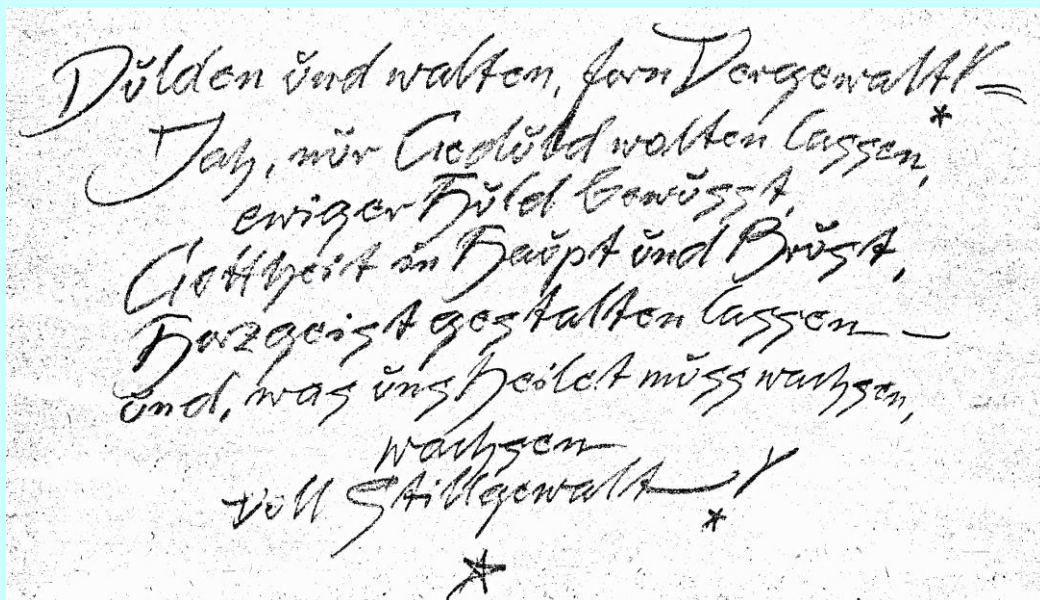 Dulden und walten, fern Vergewalt! =
Jah, nur Geduld walten lassen,
ewiger Huld bewusst,
Gottheit in Haupt und Brust,
Herzgeist gestalten lassen —
und, was uns heilet muss wachsen,
wachsen
voll Stillgewalt — !